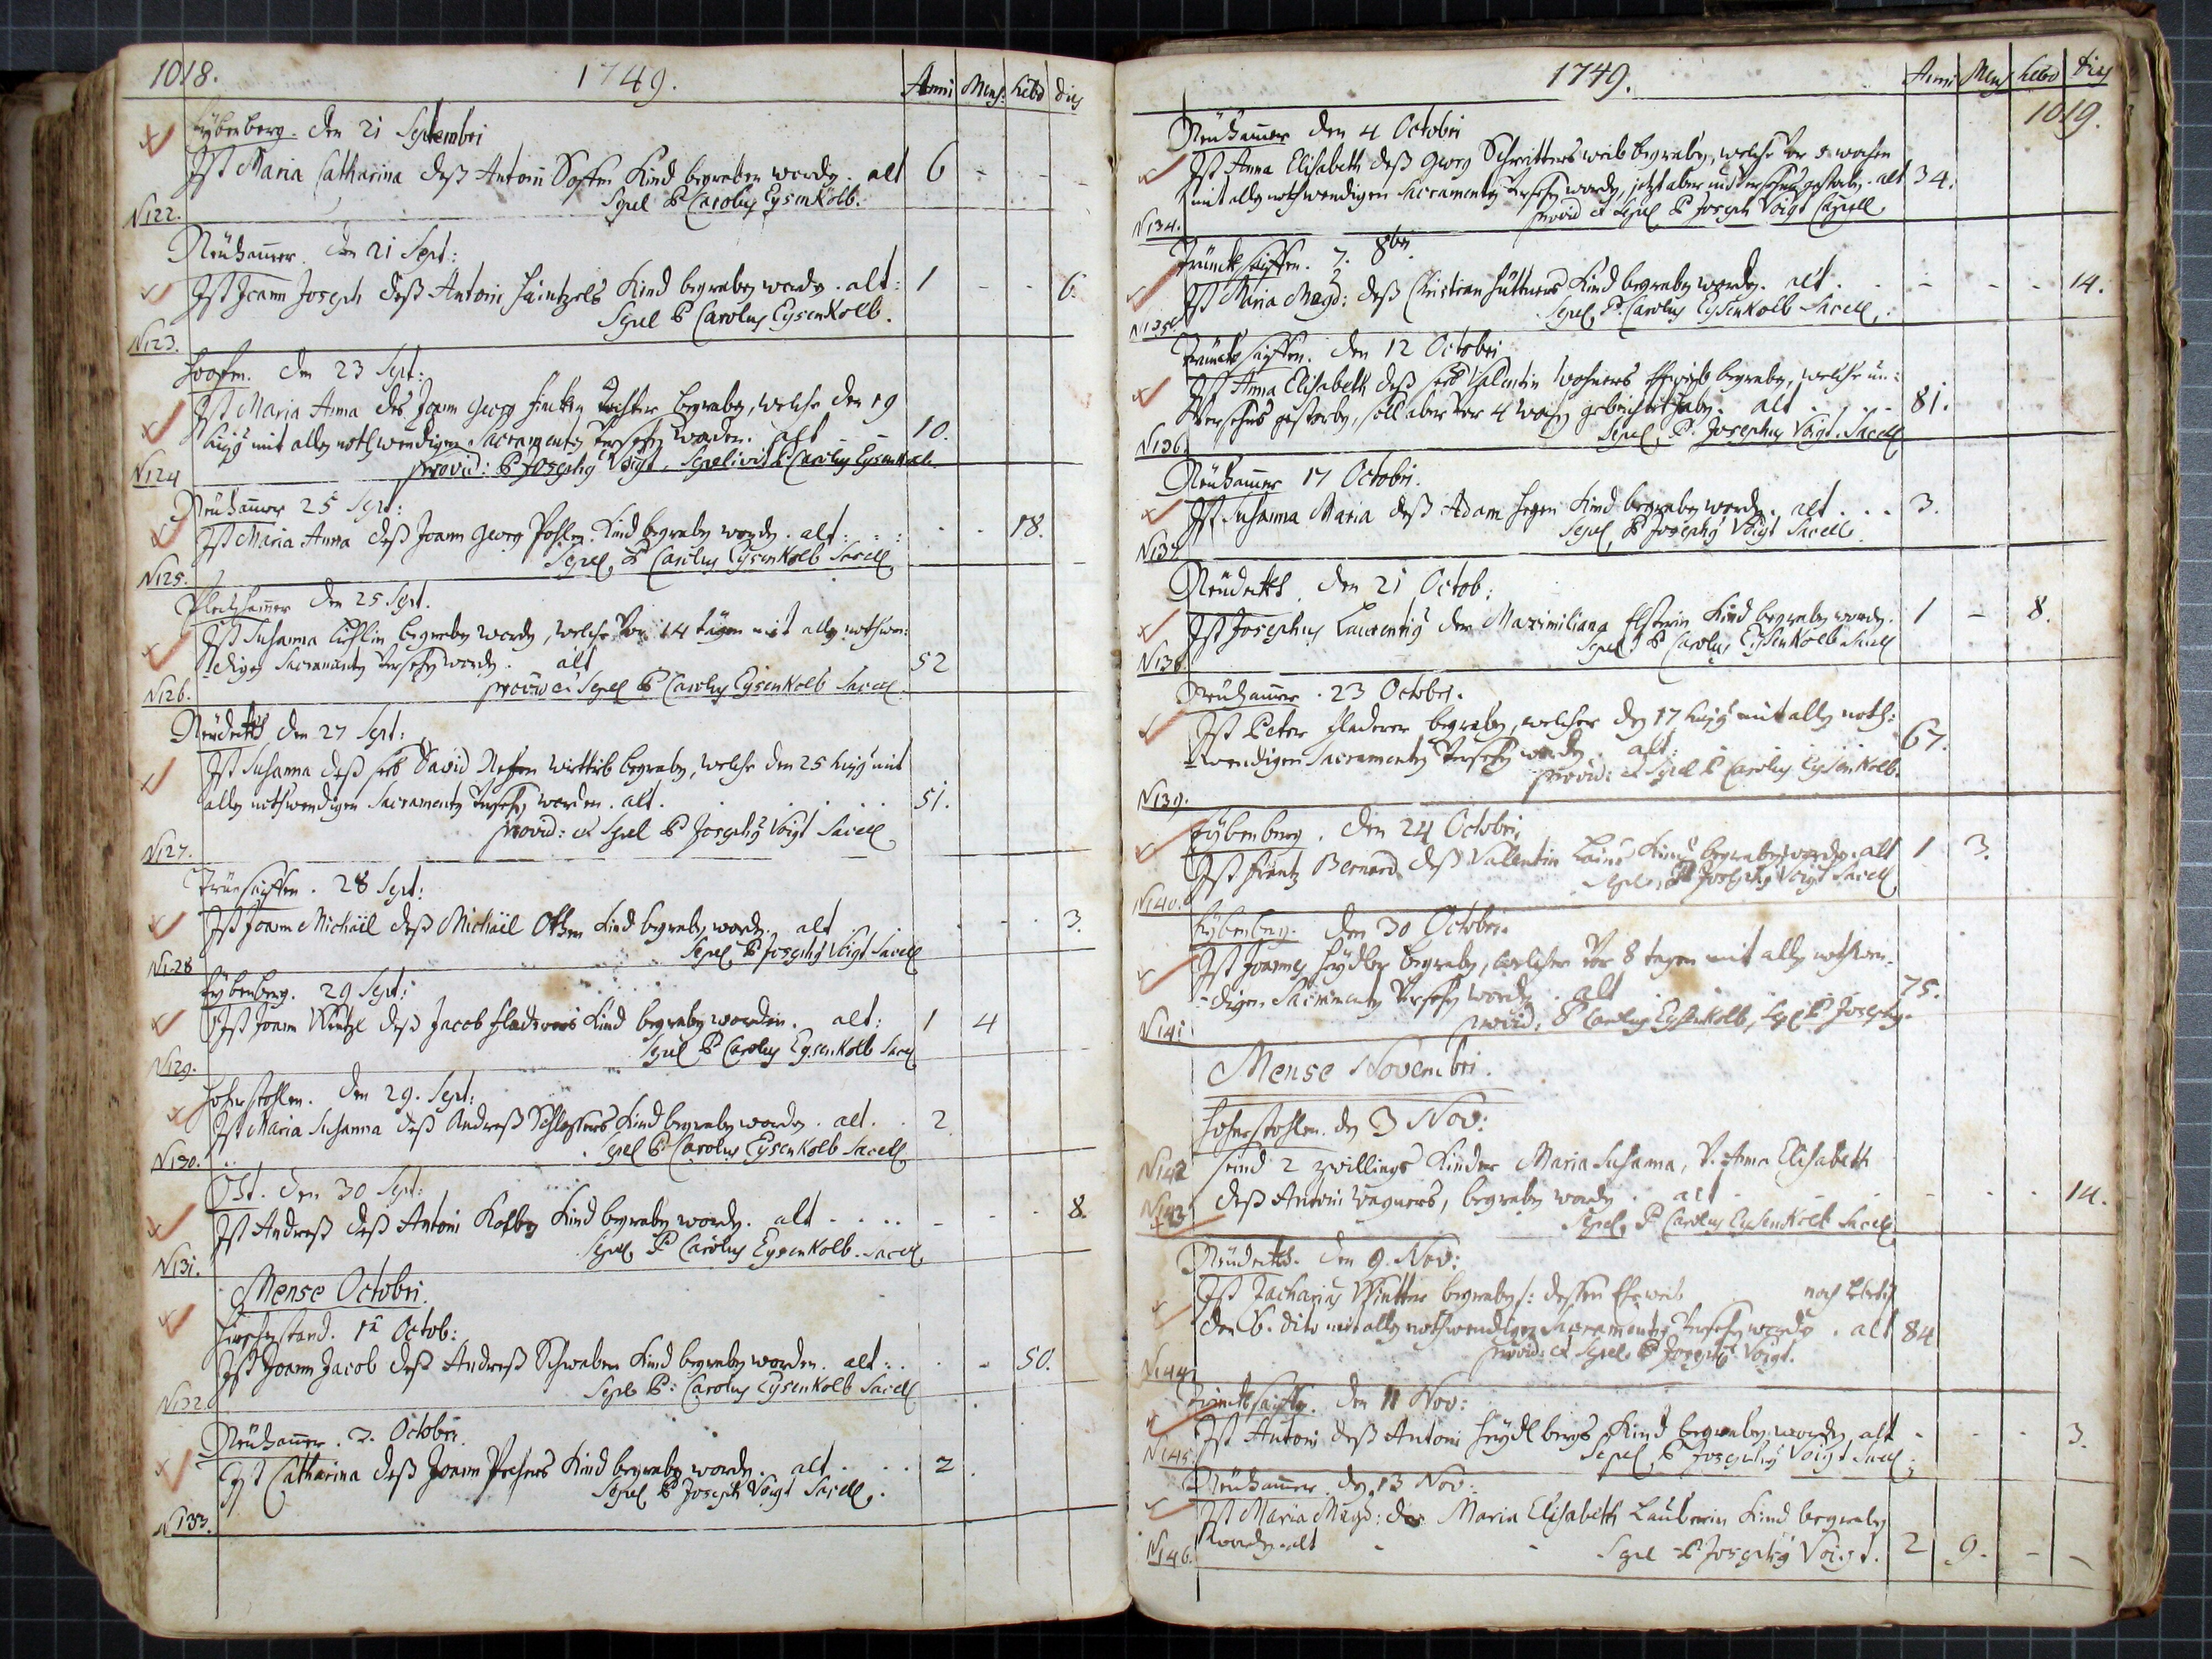 1018. 1749. Anni Mens: hebd dies
Eybenberg. den 21 Septembri
Ist Maria Catharina deß Antoni Kind begraben worden. alt 6 - - -
N122. Sepel P Carolus Eysenkolb.
Neuhammer. den 21 Sept:
Ist Joann Joseph deß Antoni Haintzels Kind begraben worden. alt: 1 - - 6.
N123. Sepel P Carolus Eysenkolb.
den 23 Sept:
Ist Maria Anna des Joann Georg Tochter begraben, welche den 19
hujus mit allen nothwendigen Sacramenten versehen worden. alt 10.
N124 provid: P Josephus Voigt, Sepelivit P Carolus Eysenkolb.
Neuhammer 25 Sept:
Ist Maria Anna deß Joann Georg Pohlen Kind begraben worden. alt: - - 18.
N125. Sepel, P Carolus Eysenkolb Sacell
den 25 Sept.
Ist Susanna begraben worden, welche vor 14 tagen mit allen nothwen-
digen Sacramenten versehen worden. alt 52
N126. provid et Sepel P Carolus Eysenkolb Sacell.
Neudeckh den 27 Sept:
Ist Susanna deß David wittib begraben, welche den 25 hujus mit
allen nothwendigen Sacramenten versehen worden. alt. 51.
N127. provid: et Sepel P Josephus Voigt Sacell
28 Sept:
Ist Joann Michäel deß Michäel Kind begraben worden. alt 3.
N128 Sepel P Josephus Voigt Sacell
Eybenberg. 29 Sept:
Ist Joann Wentzl deß Jacob Fladerers Kind begraben worden. alt: 1 4
N129. Sepel P Carolus Eysenkolb Sacell
den 29. Sept:
Ist Maria Susanna deß Andreß Schlossers Kind begraben worden. alt. 2
N130. Sepel P Carolus Eysenkolb Sacell
Ist. den 30 Sept:
Ist Andreß deß Antoni Kolben Kind begraben worden. alt - - - 8.
N131. Sepel P Carolus Eysenkolb. Sacell
Mense Octobri.
Hirschenstand. 1 Octob:
Ist Joann Jacob deß Andreß Schwaben Kind begraben worden. alt: - 50.
N132. Sepel P: Carolus Eysenkolb Sacell
Neuhammer. 3. Octobri.
Ist Catharina deß Joann Pechers Kind begraben worden. alt 2
N133. Sepel P Joseph Voigt Sacell.
1749. Anni Mens hebd dies
1019.
Neuhammer den 4 Octobri
Ist Anna Elisabeth deß Georg weib begraben, welche vor wochen
mit allen nothwendigen Sacramenten versehen worden, jetzt aber gestorben. alt 34.
N134. provid et Sepel P Joseph Voigt Capell
Trinckseiffen. 7. 8bri
Ist Maria Magd: deß Christian Hüttners Kind begraben worden. alt. - - - 14.
N135 Sepel, P. Carolus Eysenkolb Sacell.
Trinckseiffen. den 12 Octobri
Ist Anna Elisabeth deß Valentin Eheweib begraben, welche un-
versehens gestorben, soll aber vor 4 wochen gebeichtet haben. alt 81.
N136. Sepel, P. Josephus Voigt. Sacell
Neuhammer 17 Octobri.
Ist Susanna Maria deß Adam Kind begraben worden. alt 3.
N137 Sepel, P Josephus Voigt Sacell.
Neudeckh. den 21 Octob:
Ist Josephus Laurentius der Maximiliana Kind begraben worden. 1 - 8.
N138 Sepel P Carolus Eysenkolb Sacell
Neuhammer. 23 Octobri.
Ist Peter Fladerer begraben, welcher den 17 hujus mit allen noth-
wendigen Sacramenten versehen worden. alt: 67.
N139. provid: et Sepel P Carolus Eysenkolb.
Eybenberg. den 24 Octobri
Ist Frantz Bernard deß Vallentin Kind begraben worden. alt 1 3.
N140. Sepel, P Josephus Voigt Sacell
Eybenberg. den 30 Octobri.
Ist Joannes begraben, welcher vor 8 tagen mit allen nothwen-
digen Sacramenten versehen worden. alt 75.
N141 provid: P Carolus Eysenkolb, Sepel P Josephus.
Mense Novembri.
den 3 Nov:
N142 seind 2 zwillings Kinder Maria Susanna, v. Anna Elisabeth
N143 deß Antoni Wagners, begraben worden. alt - - - 14.
Sepel, P. Carolus Eysenkolb Sacell
Neudeckh. den 9. Nov:
Ist Zacharias Wintter begraben /: dessen Eheweib noch
den 6. dito mit allen nothwendigen Sacramenten versehen worden. alt 84
N144 provid: et Sepel. P Josephus Voigt.
Trinckseiffen. den 11 Nov:
Ist Antoni deß Antoni Kind begraben worden alt - - - 3.
N145. Sepel, P Josephus Voigt Sacell
Neuhammer. den 13 Nov:
Ist Maria Magd: der Maria Elisabeth Lauberin Kind begraben
N146. worden. alt Sepel P Josephus Voigt. 2 9. - -